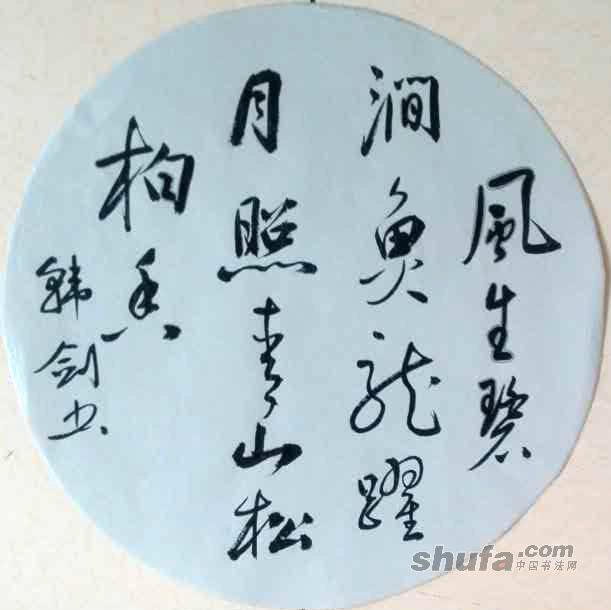 風生碧
澗魚龍躍
月照青山松
柏香
韩剑书
shufa.com
中国书法网